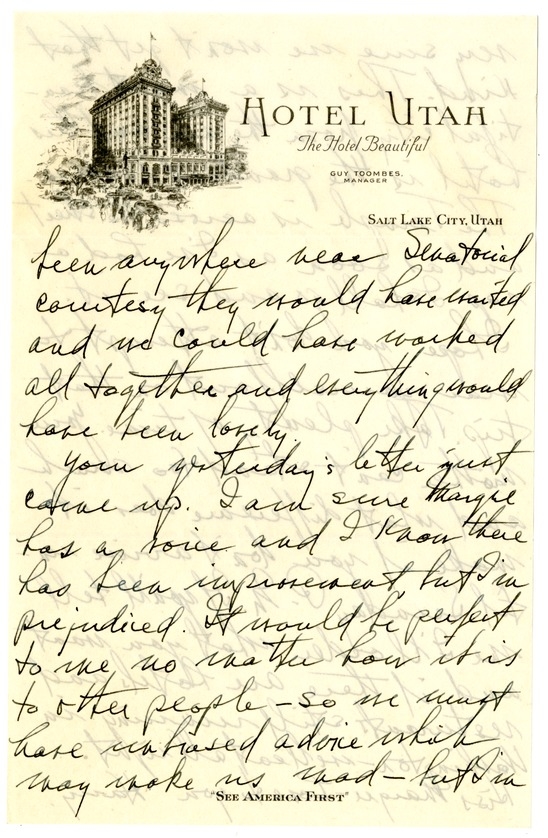 HOTEL UTAH
The Hotel Beautiful
GUY TOOMBES.
MANAGER
SALT LAKE CITY, UTAH
been anywhere near Senatorial
courtesy they would have waited
and we could have worked
all together and everything would
have been lovely.
Your yesterday's letter just
came up. I am sure Margie
has a voice and I know there
has been improvement but I'm
prejudiced. It would be perfect
to me no matter how it is
to other people - so we must
have unbiased advice which
may make us mad - but I'm
"SEE AMERICA FIRST"